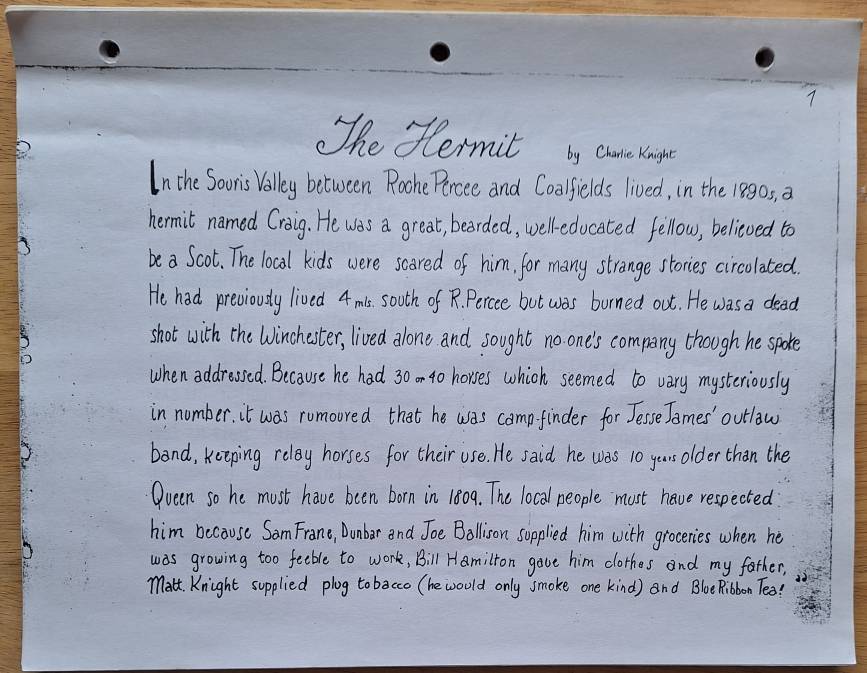 1
The Hermit by Charlie Knight
In the Souris Valley between Roche Percee and Coalfields lived, in the 1890s, a
hermit named Craig. He was a great, bearded, well-educated fellow, believed to
be a Scot. The local kids were scared of him, for many strange stories circulated.
He had previously lived 4 mls. south of R.Percee but was burned out. He was a dead
shot with the Winchester, lived alone and sought no one's company though he spoke
when addressed. Because he had 30 or 40 horses which seemed to vary mysteriously
in number, it was rumoured that he was camp-finder for Jesse James' outlaw
band, keeping relay horses for their use. He said he was 10 years older than the
Queen so he must have been born in 1809. The local people must have respected
him because Sam Frane, Dunbar and Joe Ballison supplied him with groceries when he
was growing too feeble to work, Bill Hamilton gave him clothes and my father,
Matt. Knight supplied plug tobacco (he would only smoke one kind) and Blue Ribbon Tea!"